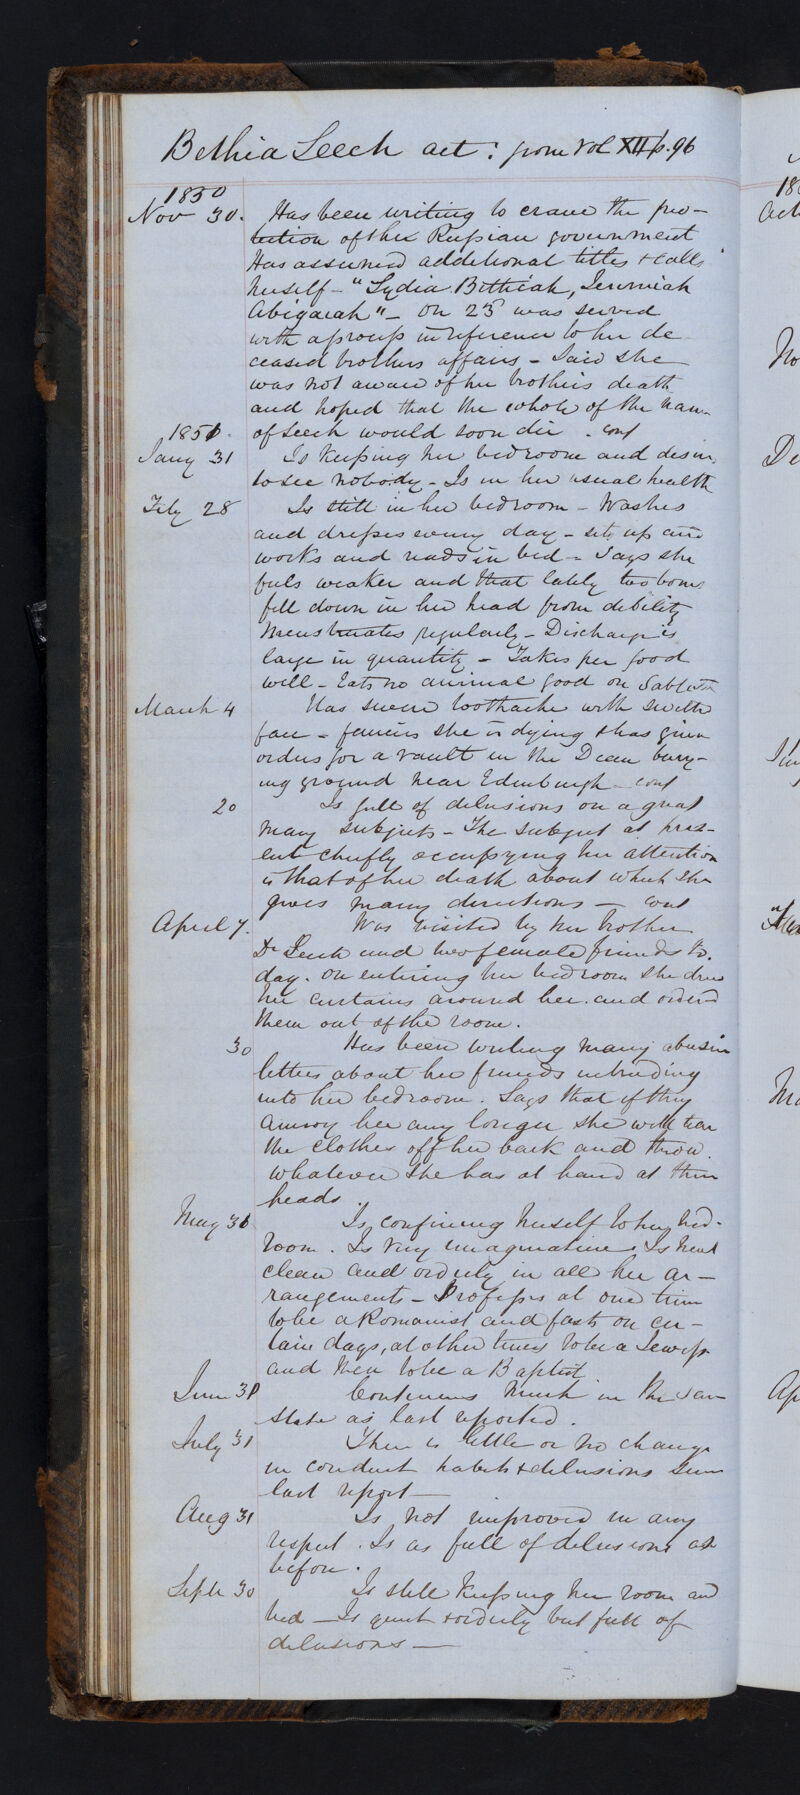 Bethia Leech aet: from Vol XII p. 96
1850
Nov 30. Has been writing to crave the pro-
tection of the Russian government
Has assumed additional titles & calls
herself - "Lydia Bethiah, Jeremiah
Abigaiah" - On 25 was served
with a process in reference to her de
ceased brothers affairs - Said she
was not aware of her brothers death
and hoped that the whole of the name
1851. of Leech would soon die. cont
Jany 31 Is keeping her bedroom and desires
to see nobody - Is in her usual health
Feby 28 Is still in her bedroom - Washes
and dresses every day - sits up and
works and reads in bed - Says she
feels weaker and that lately two bones
fell down in her head from debility
Menstruates regularly - Discharge is
large in quantity - Takes her food
well - Eats no animal food on Sabbath
March 4 Has severe toothache with swelled
face - fancies she is dying & has given
orders for a vault in the Dean bury-
ing ground near Edinburgh - cont
20 Is full of delusions on a great
many subjects - The subject at pres-
ent chiefly occupying her attention
is that of her death about which she
gives many directions - cont
April 7. Was visited by her brother
Dr Leech and two female friends to
day. On entering her bedroom she drew
her curtains around her. and ordered
them out of the room.
30 Has been writing many abusive
letters about her friends intruding
into her bedroom. Says that if they
annoy her any longer she will tear
the clothes off her back and throw
whatever she has at hand at their
heads.
May 31 Is confining herself to her bed-
room. Is very imaginative. Is neat
clean and orderly in all her ar-
rangements - Professes at one time
to be a Romanist and fasts on cer-
tain days, at other times to be a Jewess
and then to be a Baptist
June 30 Continues much in the same
state as last reported.
July 31 There is little or no change
in conduct habits & delusions since
last report -
Aug 31 Is not improved in any
respect. Is as full of delusions as
before.
Sept 30 Is still keeping her room and
bed - Is quiet & orderly but full of
delusions -